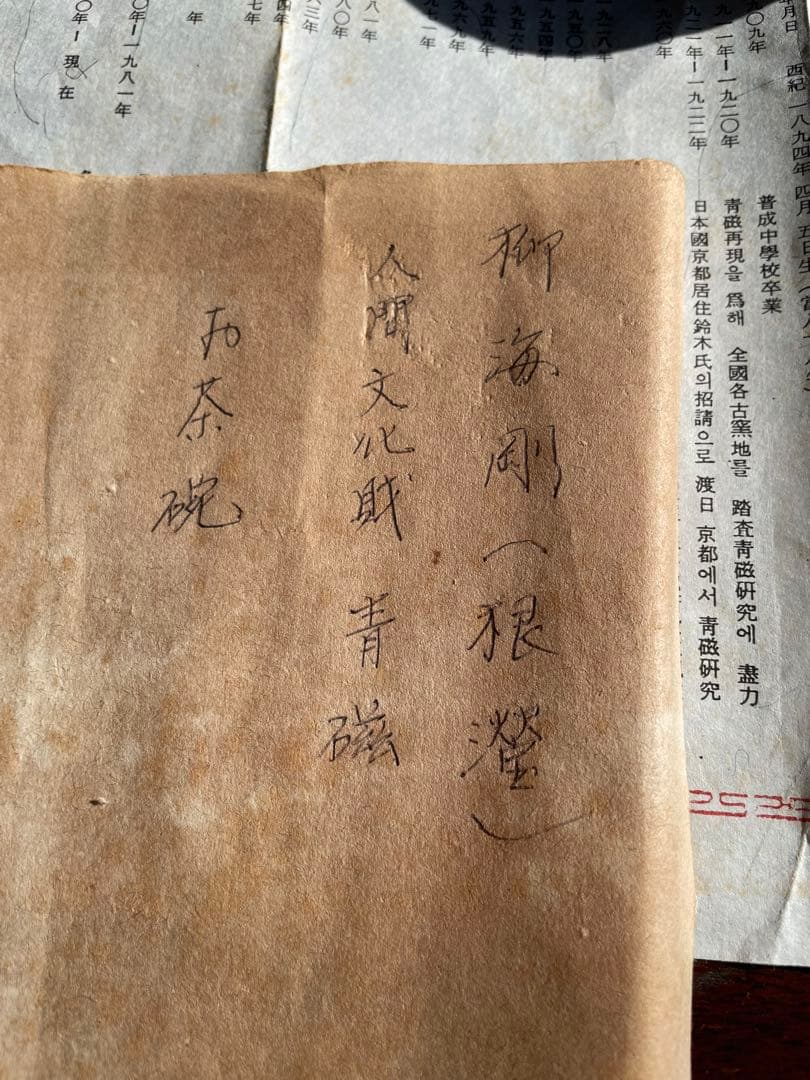 年月日 西紀 一八九四年 四月 五日生
〇九年 普成中學校卒業
一一年ー一九二〇年 靑磁再現을 爲해 全國各古窯地를 踏査靑磁硏究에 盡力
九二一年ー一九二二年 日本國京都居住鈴木氏의招請으로 渡日 京都에서 靑磁硏究
九六〇年
一九二八年
一九五〇年
一九五四年
九五六年
九五九年
九六九年
九七一年
八一年
八〇年
六三年
四年
七年
年
〇年ー一九八一年
〇年ー現在
柳海剛(根瀅)
人間文化財 青磁
お茶碗